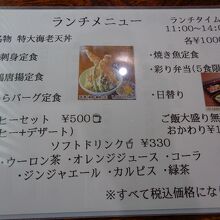 ランチメニュー
ランチタイム
11:00~14:00
各¥1000
名物 特大海老天丼
・焼き魚定食
刺身定食
・彩り弁当(5食限
鶏唐揚定食
・日替り
らバーグ定食
ヒーセット ¥500
ご飯大盛り無
ヒー+デザート)
おかわり¥1
ソフトドリンク ¥330
・ウーロン茶・オレンジジュース・コーラ
・ジンジャエール・カルピス・緑茶
*すべて税込価格になり